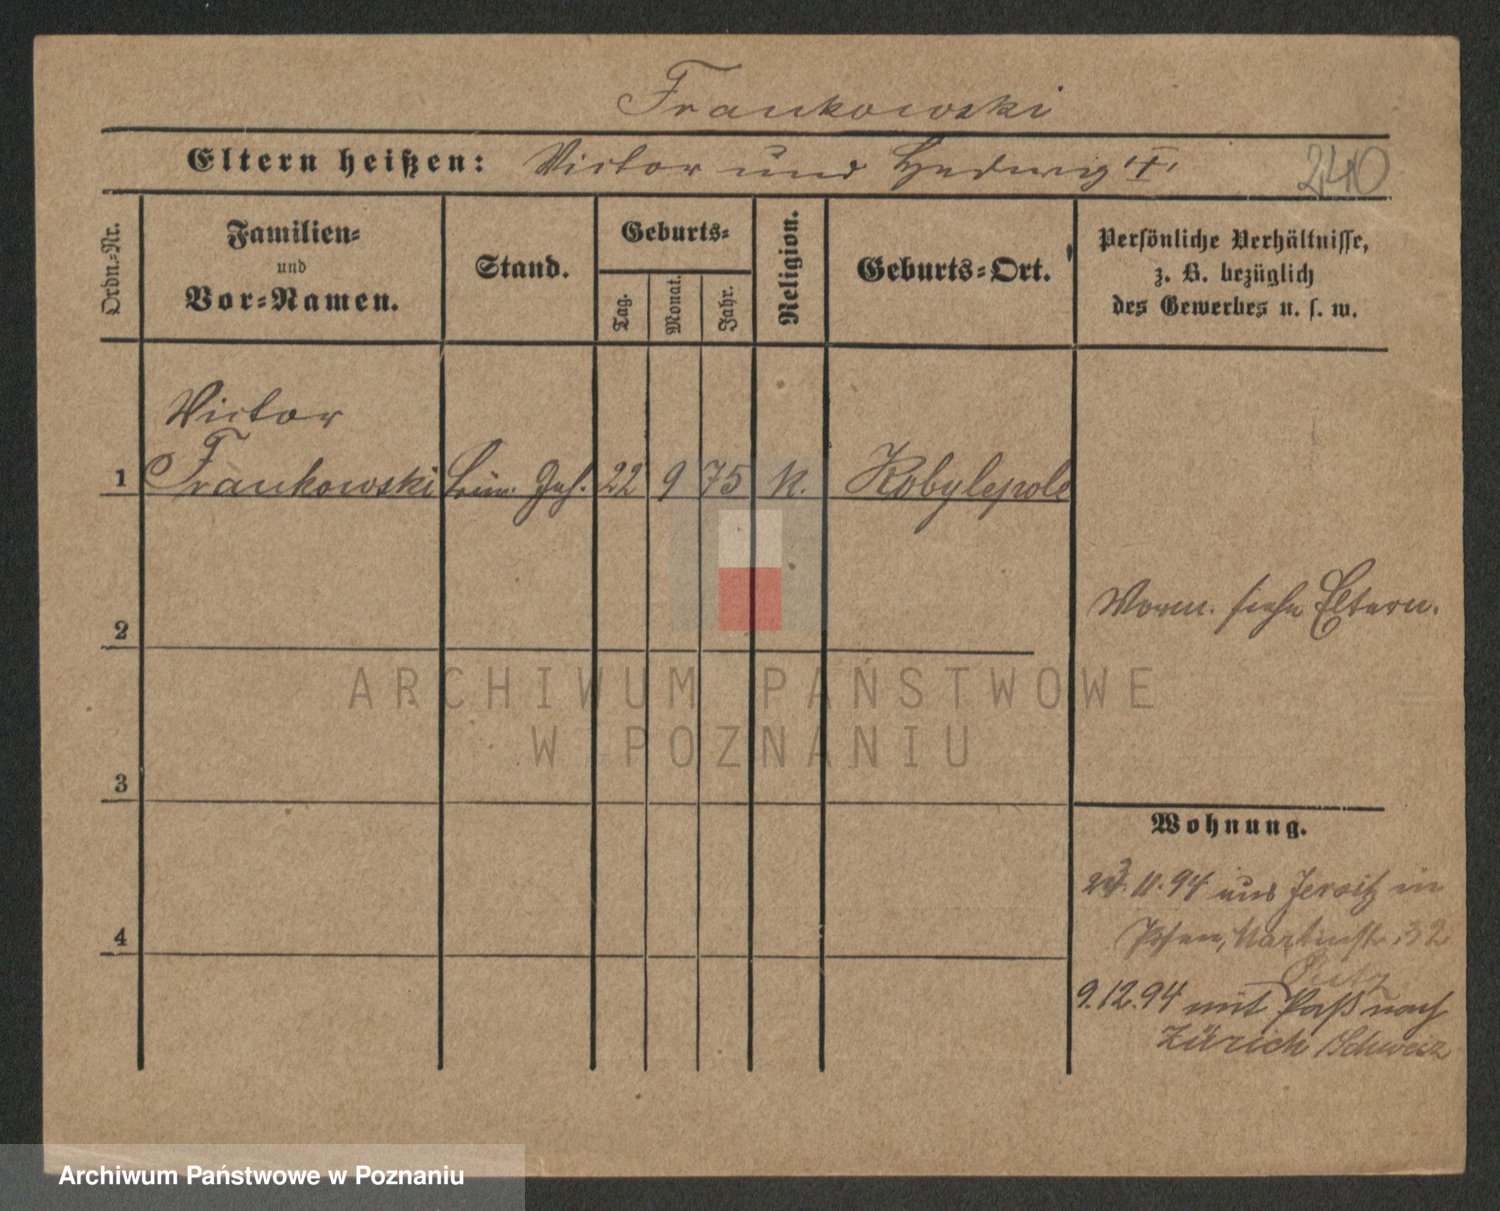 Frankowski
Eltern heißen: Victor und Hedwig
240
Ordn.-Nr.
Familien-
und
Vor-Namen.
Stand.
Geburts-
Tag.
Monat.
Jahr.
Religion.
Geburts-Ort.
Persönliche Verhältnisse,
z. B. bezüglich
des Gewerbes u. s. w.
Victor
1 Frankowski 22 9 75 k. Kobylepole
Vorm. siehe Eltern.
2
3
4
Wohnung.
11.94 aus Jersitz in
Posen, Martinstr. 32
9.12.94 mit Paß nach
Zürich Schweiz
ARCHIWUM PAŃSTWOWE
W POZNANIU
Archiwum Państwowe w Poznaniu